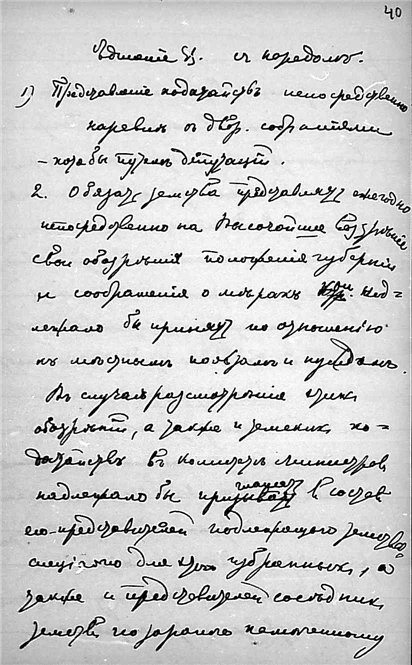 40
Единение Ц. съ народомъ.
1) Представленіе ходатайствъ непосредственно
наравнѣ съ двор. собраніями
– хотя бы путемъ депутацій.
2. Обязать земства представлять ежегодно
непосредственно на Высочайшее воззрѣніе
свои обозрѣнія положенія губерніи
и соображенія о мѣрахъ кои над-
лежало бы принять по отношенію
къ мѣстнымъ пользамъ и нуждамъ.
Въ случаѣ разсмотрѣнія этихъ
обозрѣній, а также и земскихъ хо-
датайствъ въ Комитетѣ Министровъ
надлежало бы приглашать въ составъ
его представителей подлежащаго земства
спеціально для этого избранныхъ, а
также и представителей сосѣднихъ
земствъ по заранѣе намѣченному